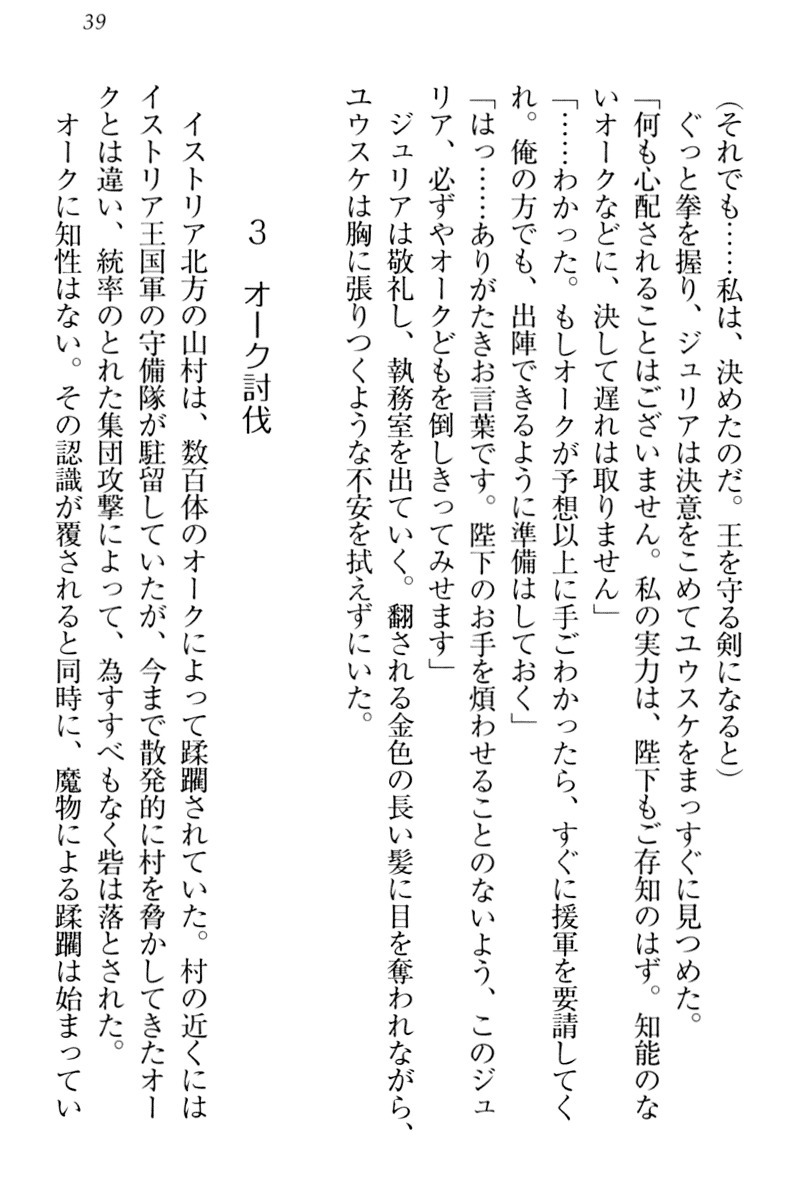 39
(それでも……私は、決めたのだ。王を守る剣になると)
　ぐっと拳を握り、ジュリアは決意をこめてユウスケをまっすぐに見つめた。
「何も心配されることはございません。私の実力は、陛下もご存知のはず。知能のな
いオークなどに、決して遅れは取りません」
「……わかった。もしオークが予想以上に手ごわかったら、すぐに援軍を要請してく
れ。俺の方でも、出陣できるように準備はしておく」
「はっ……ありがたきお言葉です。陛下のお手を煩わせることのないよう、このジュ
リア、必ずやオークどもを倒しきってみせます」
　ジュリアは敬礼し、執務室を出ていく。翻される金色の長い髪に目を奪われながら、
ユウスケは胸に張りつくような不安を拭えずにいた。
3　オーク討伐
　イストリア北方の山村は、数百体のオークによって蹂躙されていた。村の近くには
イストリア王国軍の守備隊が駐留していたが、今まで散発的に村を脅かしてきたオー
クとは違い、統率のとれた集団攻撃によって、為すすべもなく砦は落とされた。
　オークに知性はない。その認識が覆されると同時に、魔物による蹂躙は始まってい